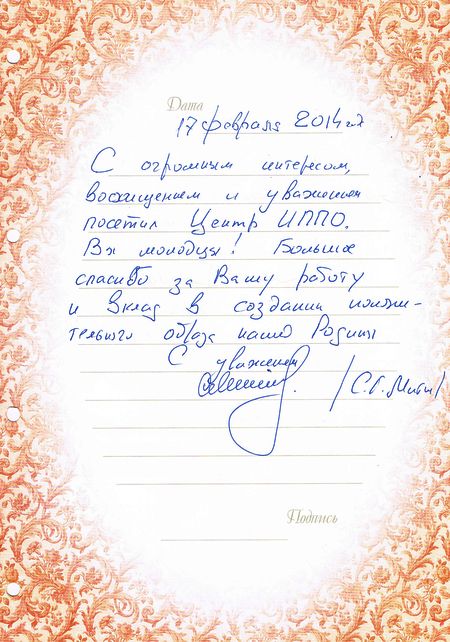 Дата
17 февраля 2014 г.
С огромным интересом,
восхищением и уважением
посетил Центр ИППО.
Вы молодцы! Большое
спасибо за Вашу работу
и вклад в создании положи-
тельного образа нашей Родины
С уважением
/С.Г. Митин/
Подпись